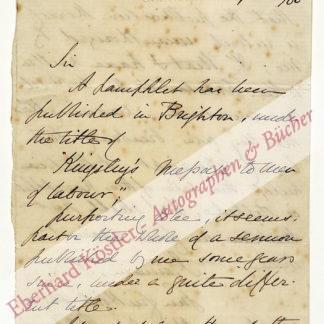 Sir
A Pamphlet has been
published in Brighton, under
the title of
"Kingsley's message to men
of labour",
purporting to be, it seems,
part or the whole of a sermon
published by me some years
since, under a quite differ-
ent title.
Eberhard Köstler - Autographen & Bücher